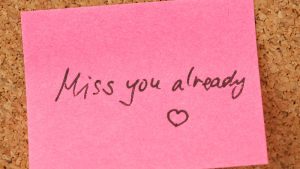 Miss you already